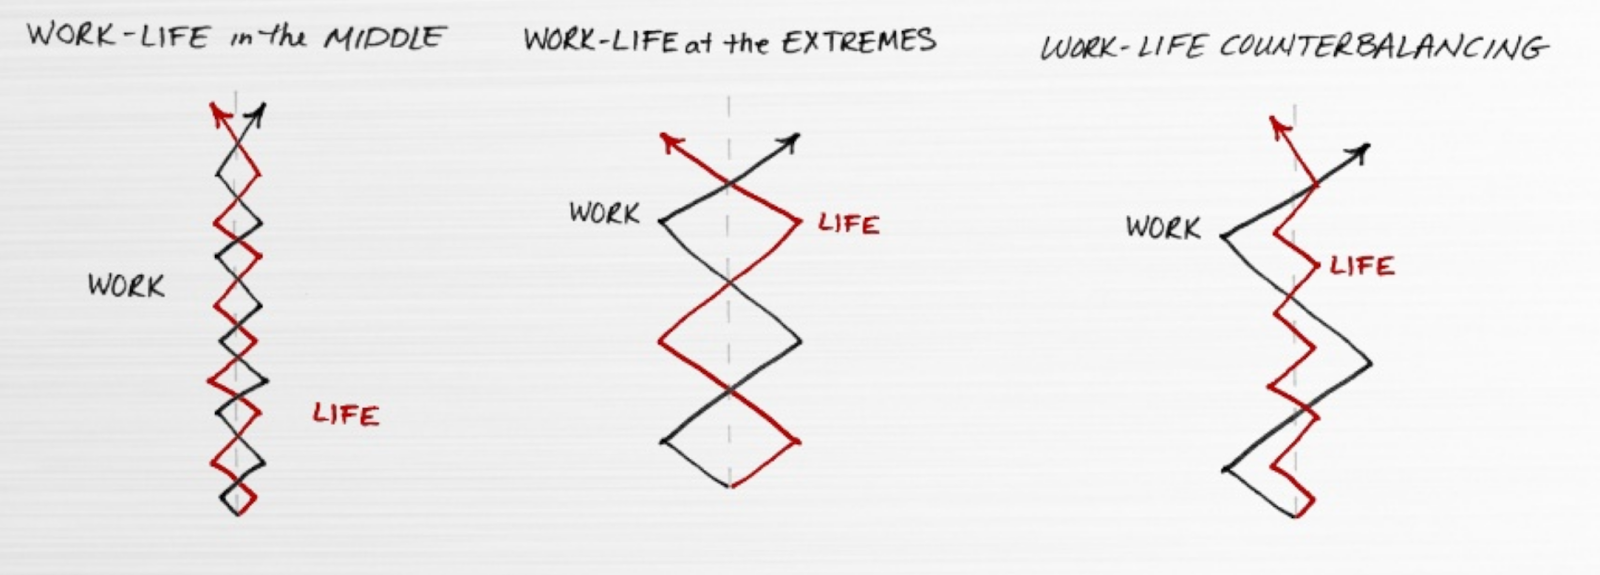 WORK-LIFE in the MIDDLE
WORK
LIFE
WORK-LIFE at the EXTREMES
WORK
LIFE
WORK-LIFE COUNTERBALANCING
WORK
LIFE